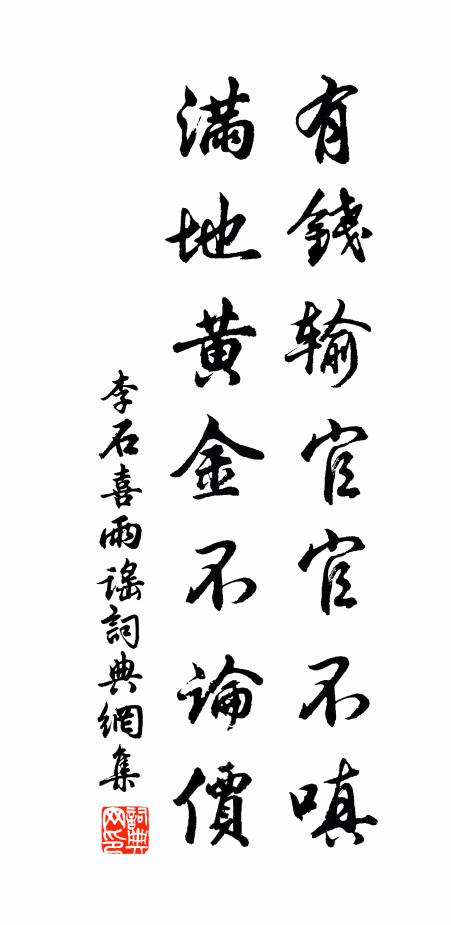 有錢輸官官不嗔
滿地黃金不論價
李石喜雨謠詞典網集
詞典
网印